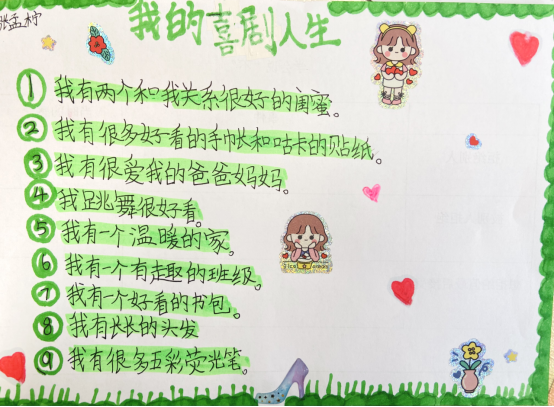 我的喜剧人生
① 我有两个和我关系很好的闺蜜。
② 我有很多好看的手帐和咕卡的贴纸。
③ 我有很爱我的爸爸妈妈。
④ 我跳舞很好看。
⑤ 我有一个温暖的家。
⑥ 我有一个有趣的班级。
⑦ 我有一个好看的书包。
⑧ 我有长长的头发
⑨ 我有很多五彩荧光笔。